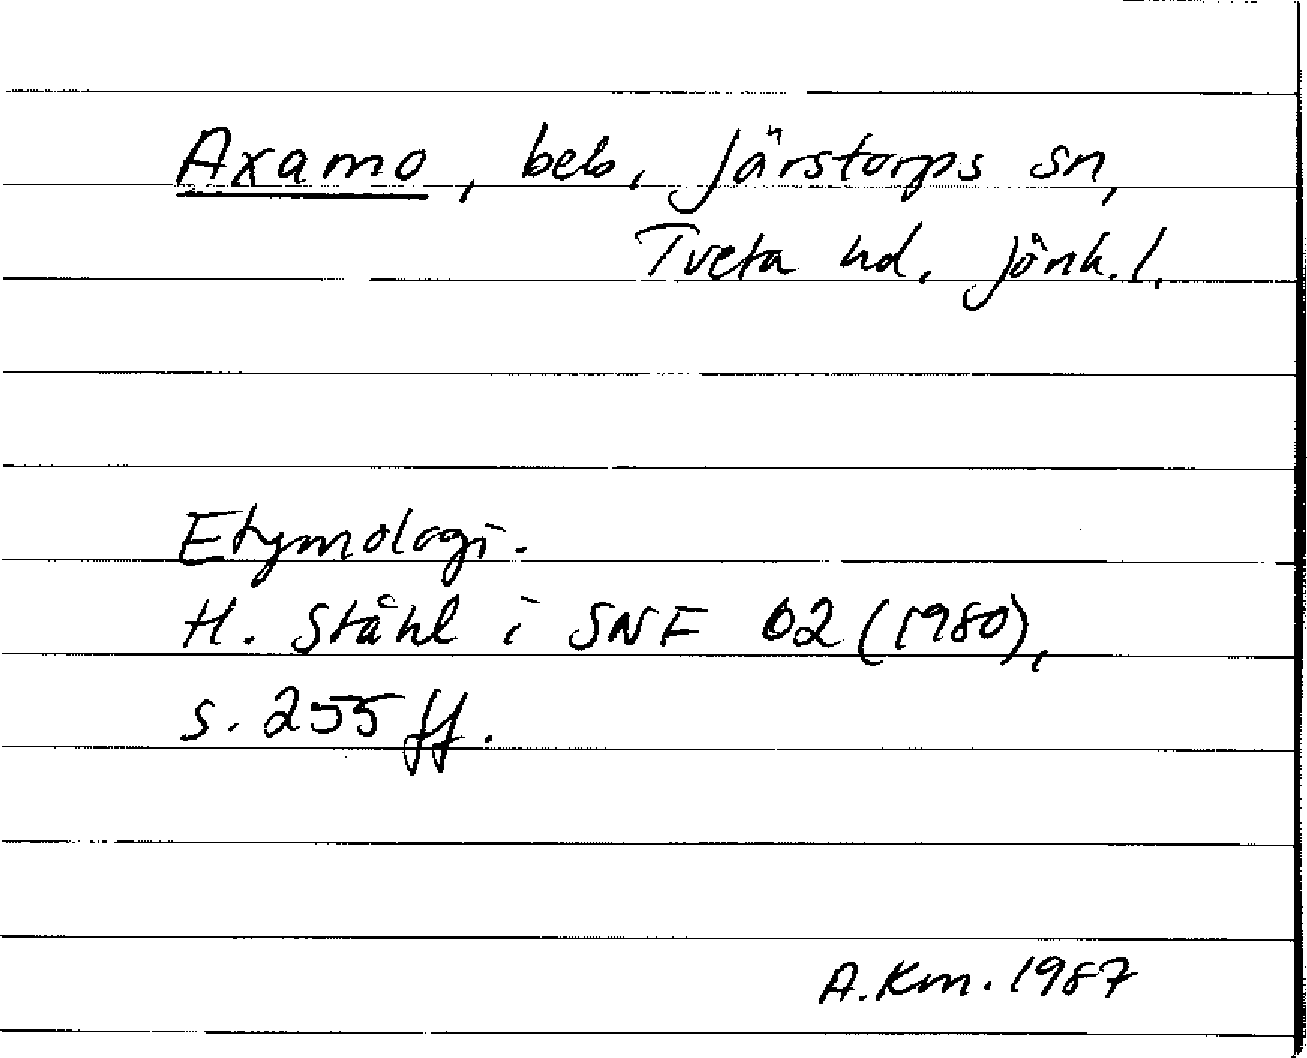 Axamo, beb. Järstorps sn,
Tveta hd. Jönk. l.
Etymologi.
H. Ståhl i SNF 62 (1980),
s. 255 ff.
A.Km. 1987